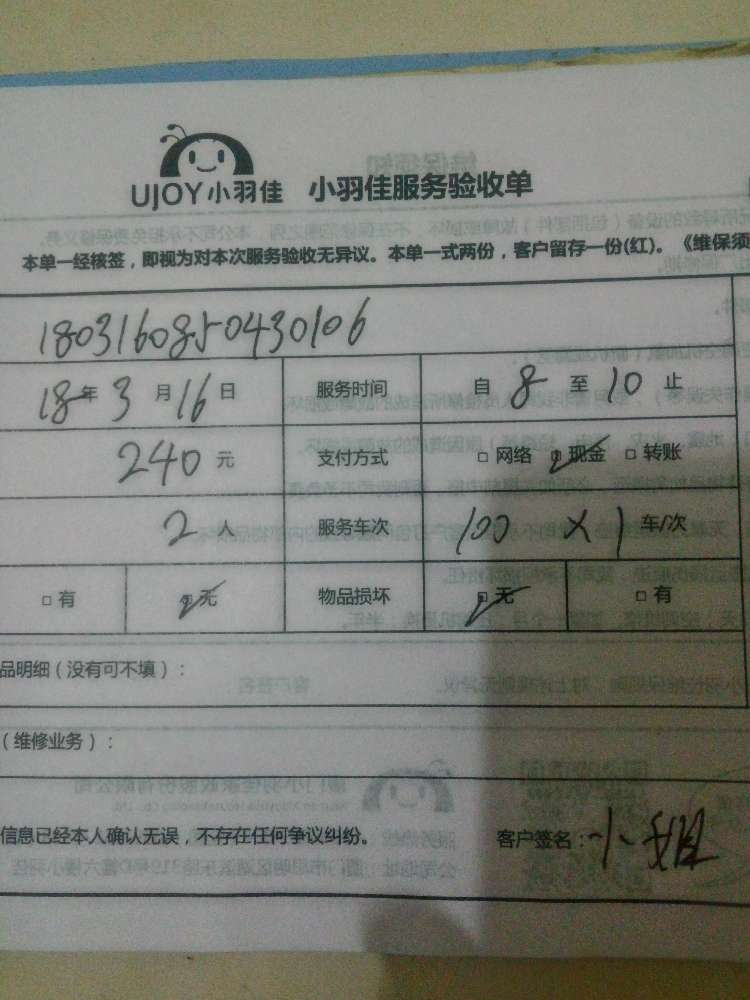 UJOY小羽佳 小羽佳服务验收单
本单一经核签，即视为对本次服务验收无异议。本单一式两份，客户留存一份(红)。《维保须
1803160850430106
18年3月16日 服务时间 自8至10止
240元 支付方式 □网络 □现金 □转账
2人 服务车次 100×1车/次
□有 □无 物品损坏 □无 □有
品明细（没有可不填）：
（维修业务）：
信息已经本人确认无误，不存在任何争议纠纷。 客户签名：小姐